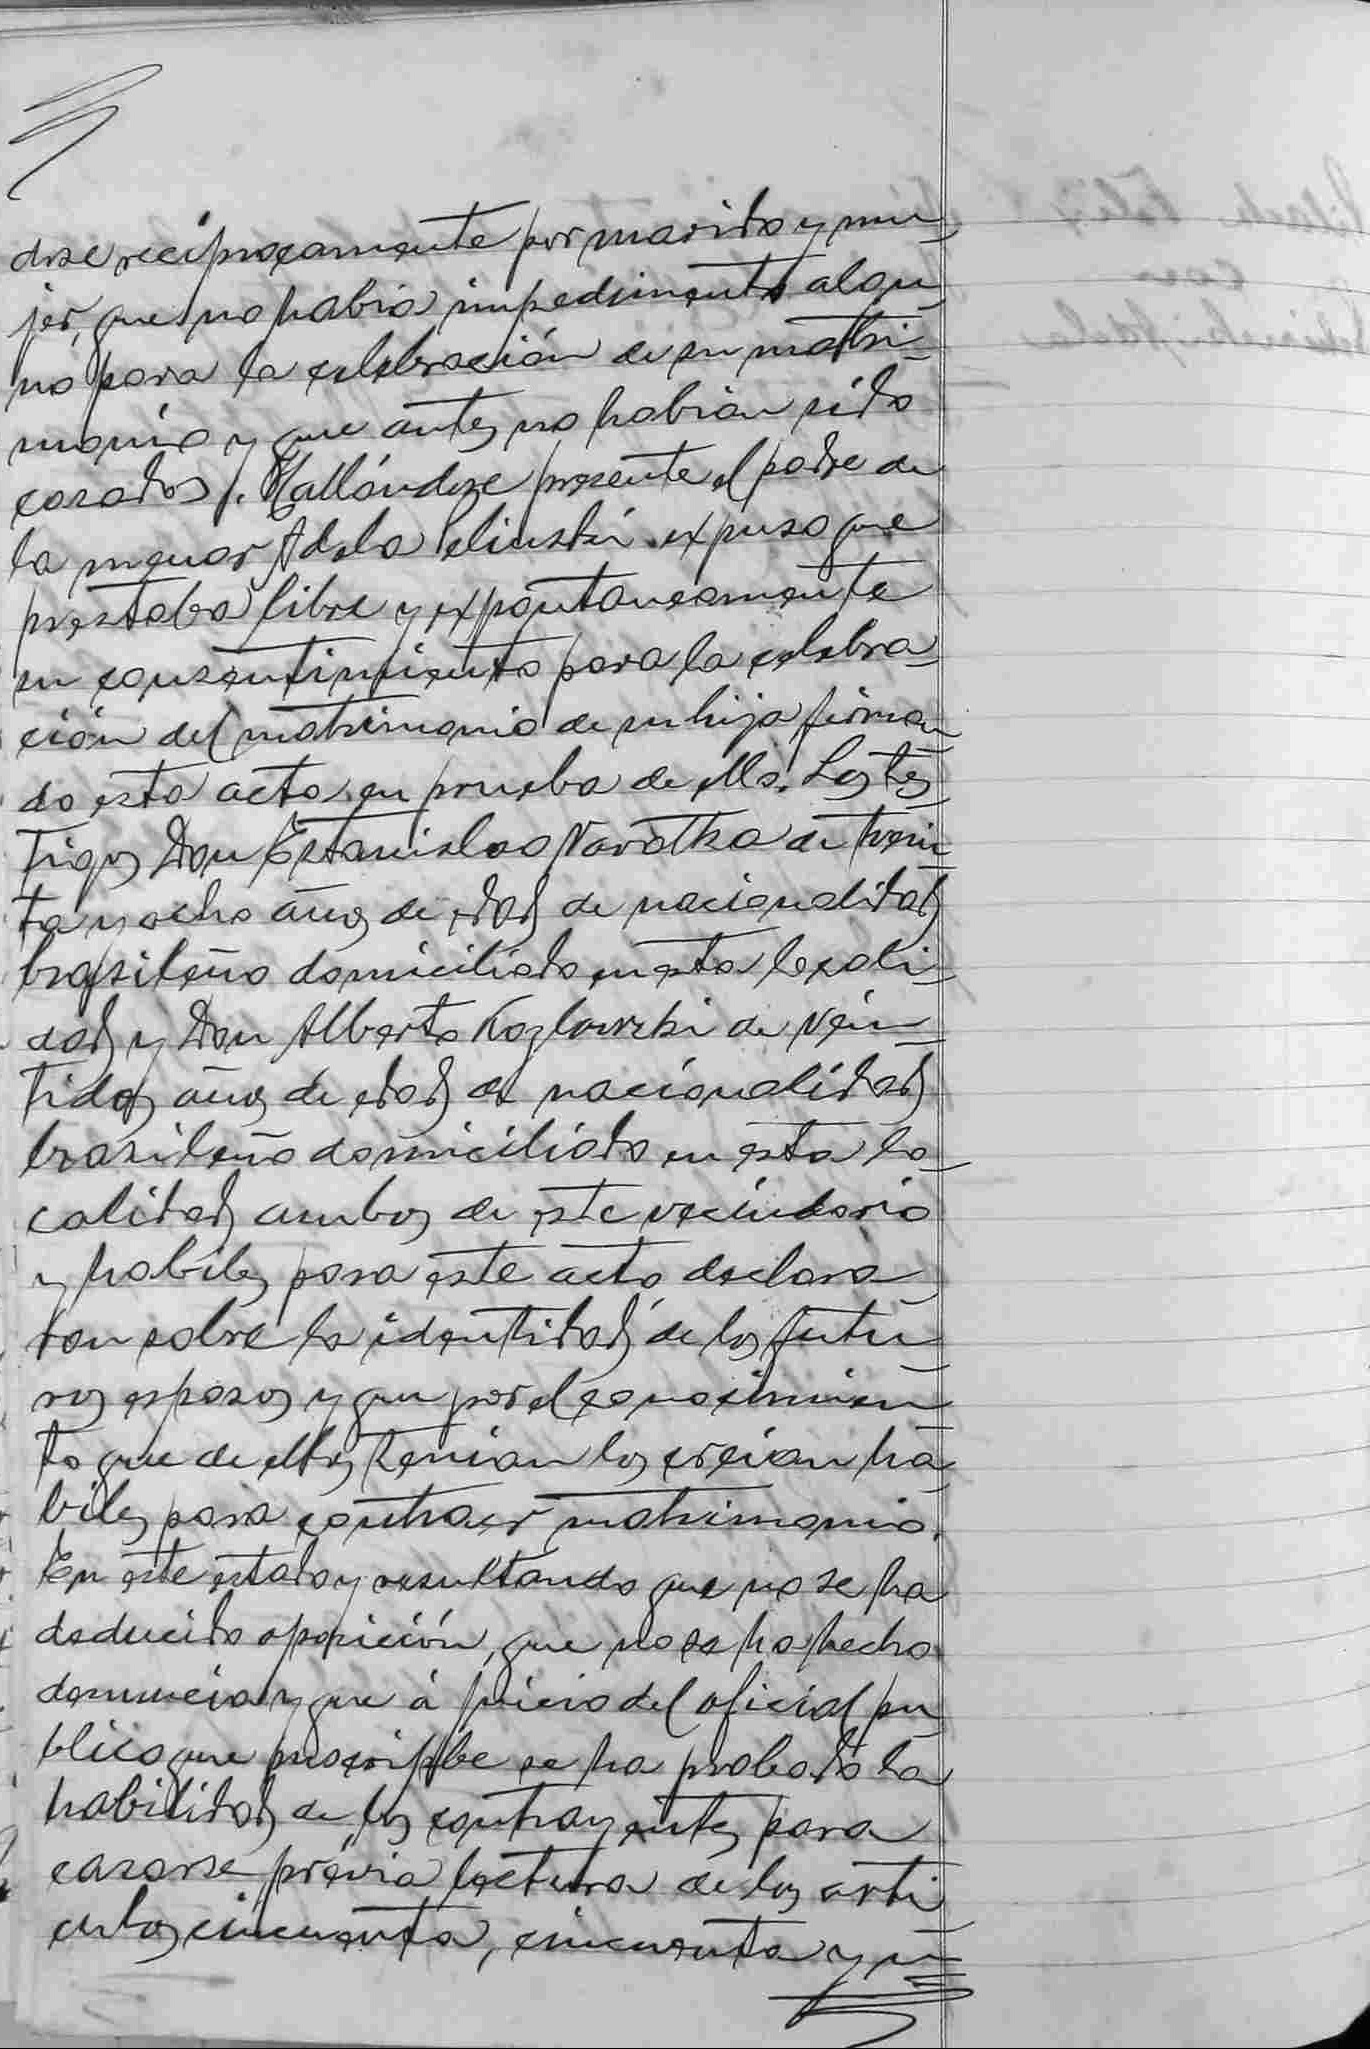 dose recíprocamente por marido y mu
jer, que no habia impedimento algu
no para la celebración de su matri
monio y que antes no habian sido
casados. Hallándose presente el padre de
la menor Adela Selinski expuso que
prestaba libre y expontaneamente
su consentimiento para la celebra
ción del matrimonio de su hija firman
do esta acta en prueba de ello. Los tes
tigos Don Estanislao Navotka de trein
ta y ocho años de edad de nacionalidad
brasileño domiciliado en esta locali
dad y Don Alberto Kozlowski de vein
tidos años de edad de nacionalidad
brasileño domiciliado en esta lo
calidad ambos de este vecindario
y habiles para este acto declara
ron sobre la identidad de los futu
ros esposos y que por el conocimien
to que de ellos tenian los creían há
biles para contraer matrimonio.
En este estado y resultando que no se ha
deducido oposición, que no se ha hecho
denuncia y que á juicio del oficial pu
blico que suscribe se ha probado la
habilidad de los contrayentes para
casarse prévia lectura de los arti
culos cincuenta, cincuenta y u